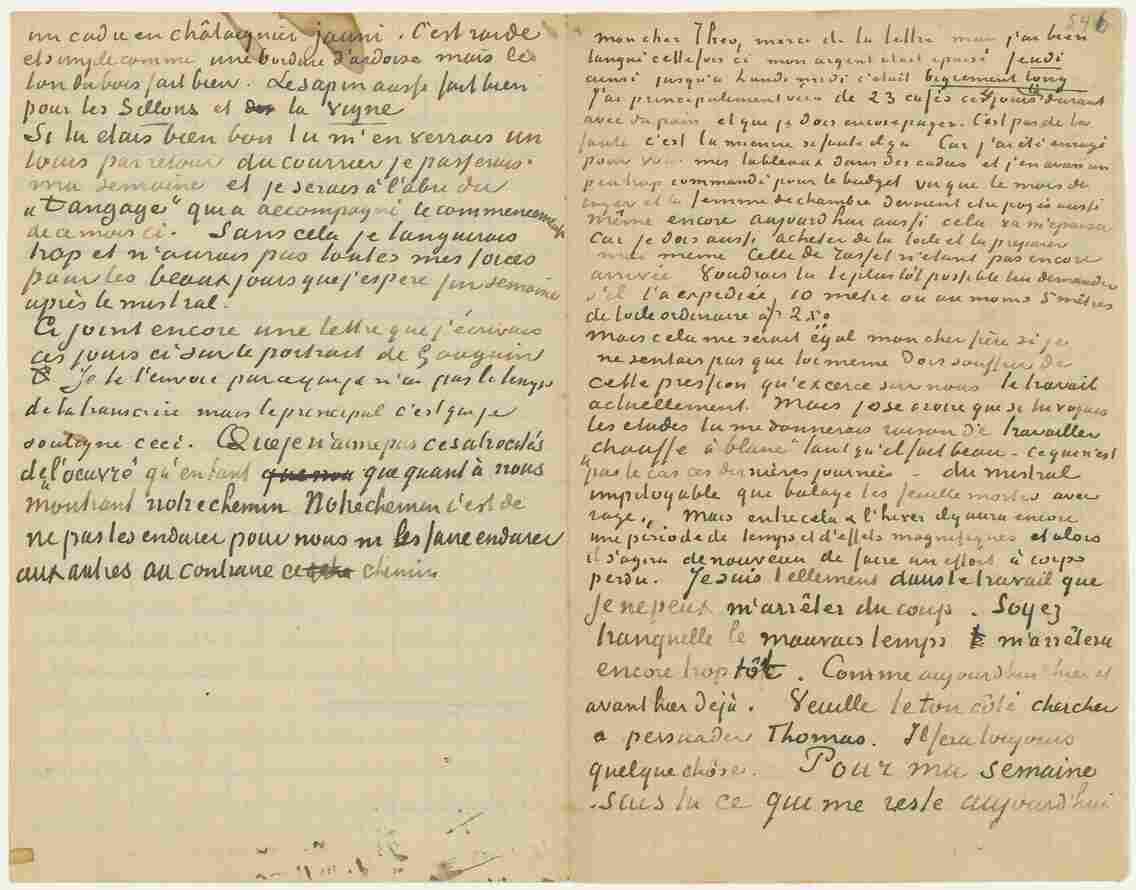 un cadre en châtaignier jauni. C'est raide
et simple comme une bordure d'ardoise mais le
ton du bois fait bien. Le sapin aussi fait bien
pour les Sillons et la Vigne
Si tu etais bien bon tu m'en verrais un
louis par retour du courrier je passerais
ma semaine et je serais à l'abri du
„Tangage" qui a accompagné le commencement
de ce mois ci. Sans cela je languirais
trop et n'aurais pas toutes mes forces
pour les beaux jours que j'espère fin semaine
après le mistral.
Ci joint encore une lettre que j'écrivais
ces jours ci sur le portrait de Gauguin
Je te l'envoie parceque je n'ai pas le temps
de la transcrire mais le principal c'est que je
souligne ceci. Que je n'aime pas ces atrocités
de „l'oeuvre" qu'en tant que quant à nous
montrant notre chemin Notre chemin c'est de
ne pas les endurer pour nous ni les faire endurer
aux autres au contraire chemin
54b
mon cher Theo, merci de ta lettre mais j'ai bien
langui cette fois ci mon argent était epuisé jeudi
ainsi jusqu'à lundi midi c'était bigrement long
j'ai principalement vécu de 23 cafés ces 4 jours durant
avec du pain et que je dois encore payer. C'est pas de ta
faute c'est la mienne si faute il y a Car j'ai été enragé
pour voir mes tableaux dans des cadres et j'en avais un
peu trop commandé pour le budget vu que le mois du
loyer et la femme de chambre devaient etre payés aussi
même encore aujourd'hui aussi cela va m'epuiser
Car je dois aussi acheter de la toile et la preparer
moi meme Celle de Tasset n'etant pas encore
arrivée Voudrais tu le plus tôt possible lui demander
s'il l'a expediée, 10 metre ou au moins 5 mètres
de toile ordinaire à fr 2.50
Mais cela me serait égal mon cher frère si je
ne sentais pas que toi meme dois souffrir de
cette pression qu'excerce sur nous le travail
actuellement. Mais j'ose croire que si tu voyais
les etudes tu me donnerais raison de travailler
chauffé à blanc tant qu'il fait beau – ce qui n'est
pas le cas ces dernières journées – du mistral
impitoyable que balaye les feuilles mortes avec
rage. Mais entre cela & l'hiver il y aura encore
une période de temps et d'effets magnifiques et alors
il s'agira de nouveau de faire un effort à corps
perdu. Je suis tellement dans le travail que
je ne peux m'arrêter du coup. Soyez
tranquille le mauvais temps m'arrêtera
encore trop tôt. Comme aujourd'hui hier et
avant hier déjà. Veuille le ton côté chercher
a persuader Thomas. Il fera toujours
quelque chôse. Pour ma semaine
sais tu ce qui me reste aujourd'hui